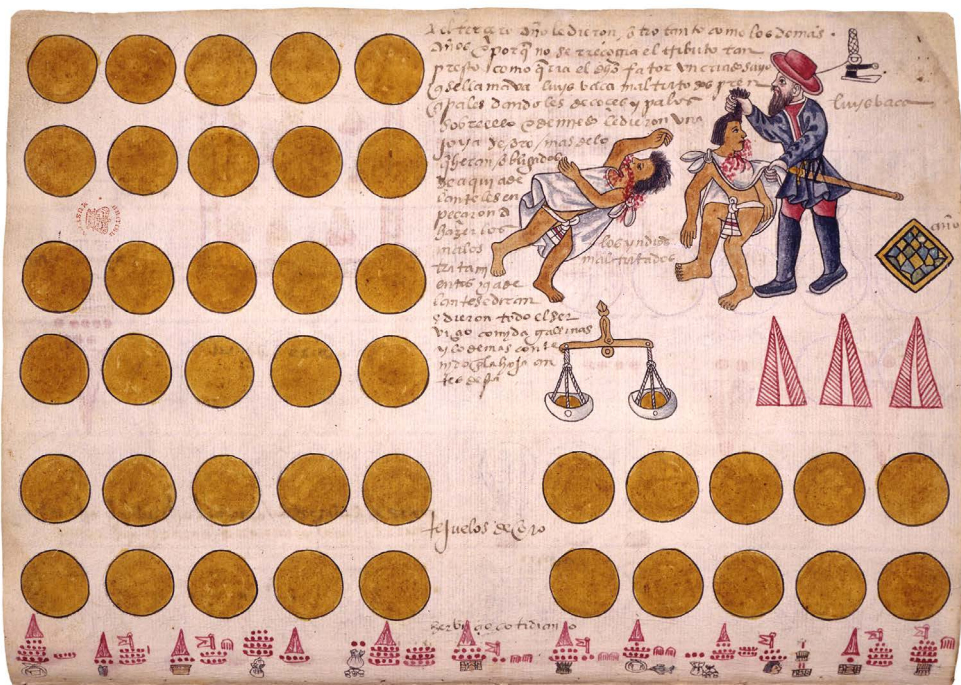 el tercero año le dieron otro tanto como los demas
años & porq no se rrecogia el tributo tan
presto como qria el dho fator un criado suyo
q se llamava luys vaca maltrato los prin
cipales dandoles de coces y palos
luys vaca
sobre ello & demas le dieron una
joya de oro mas de lo
q heran obligados
de aqui ade
lante les en
pecaron a
hazer los
malos
tratam
entos y ade
lante
dieron todo el ser
vicio comida gallinas
y lo demas conte
nido en la hoja an
tes desta
los yndios
maltratados
año
tejuelos de oro
servicio cotidiano